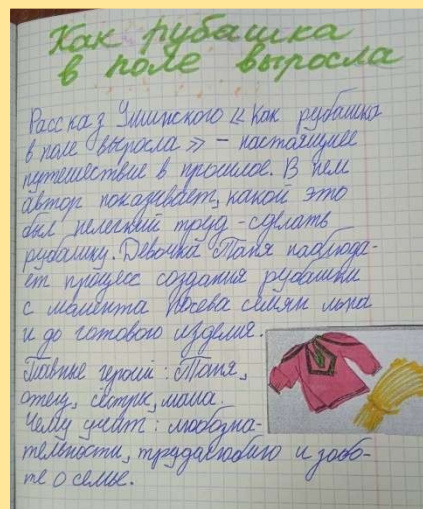 Как рубашка
в поле выросла
Рассказ Ушинского «Как рубашка
в поле выросла» – настоящее
путешествие в прошлое. В нем
автор показывает, какой это
был нелегкий труд - сделать
рубашку. Девочка Таня наблюда-
ет процесс создания рубашки
с момента посева семян льна
и до готового изделия.
Главные герои: Таня,
отец, сестры, мама.
Чему учит: любозна-
тельности, трудолюбию и забо-
те о семье.